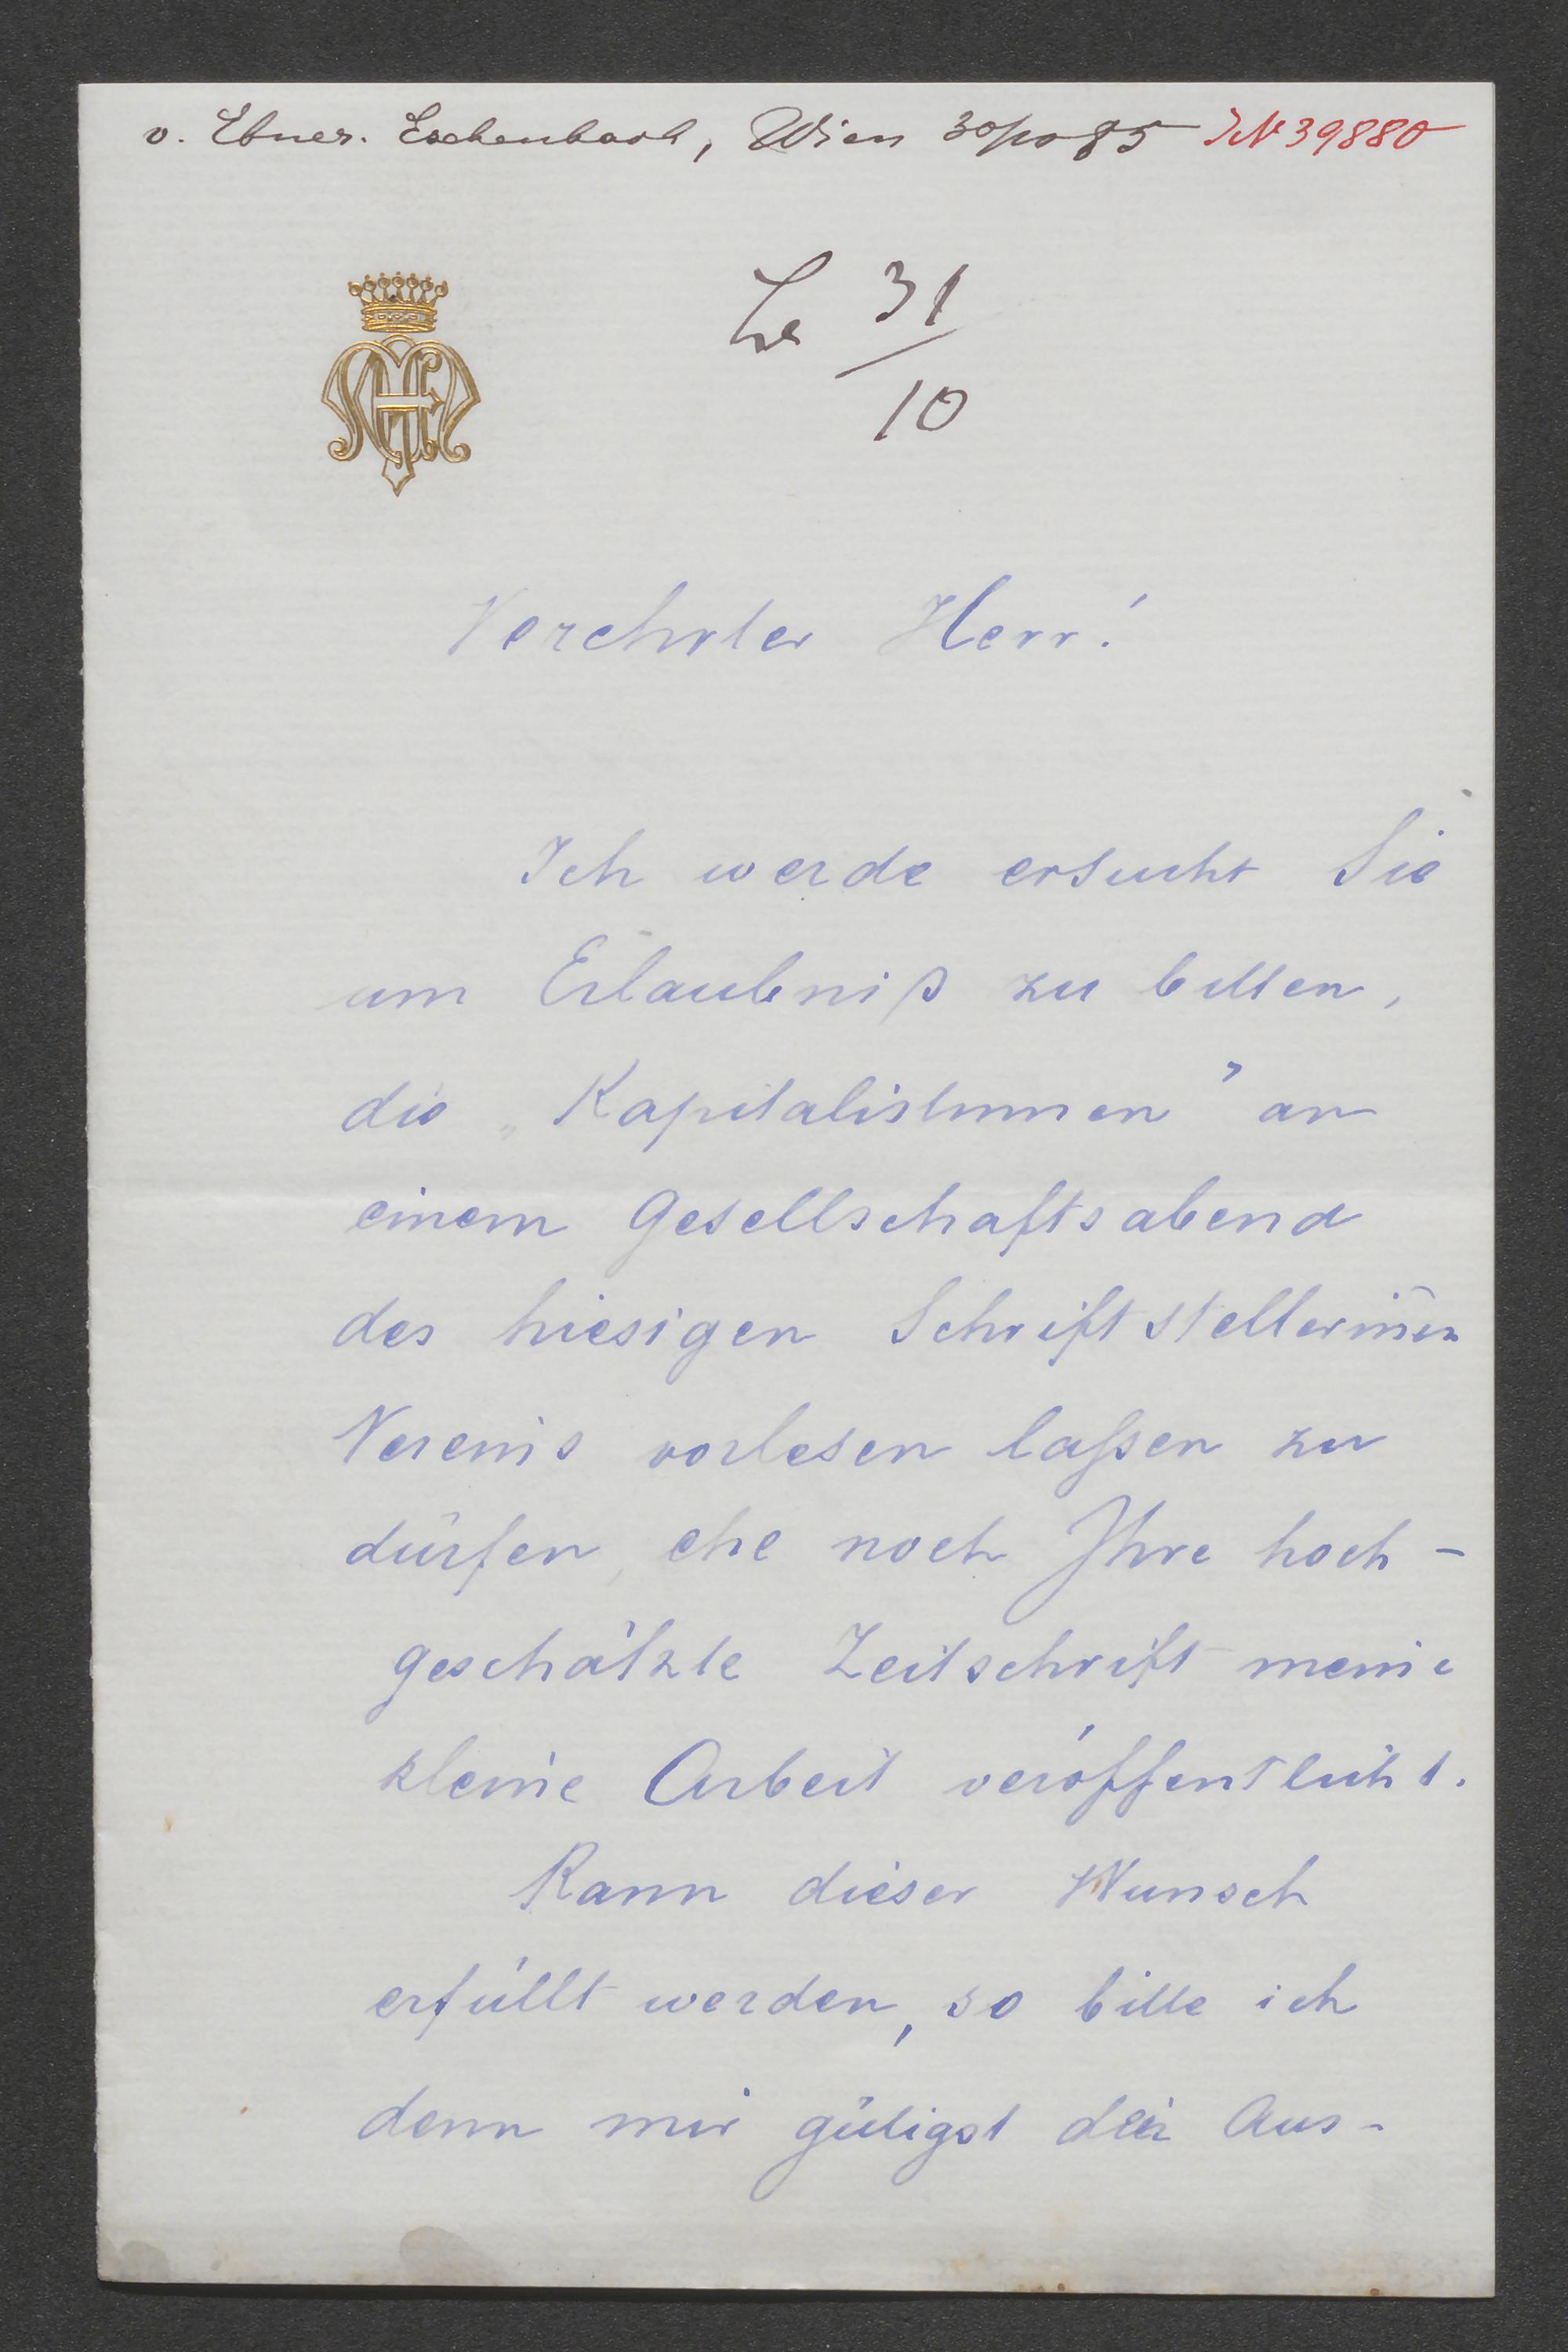 v. Ebner. Eschenbach, Wien 30/10 85 IN 39880
31
10
Verehrter Herr!
Ich werde ersucht Sie
um Erlaubniß zu bitten,
die „Kapitalistinnen" an
einem Gesellschaftsabend
des hiesigen Schriftstellerin̄en
Vereins vorlesen laßen zu
dürfen, ehe noch Ihre hoch-
geschätzte Zeitschrift meine
kleine Arbeit veröffentlicht.
Kann dieser Wunsch
erfüllt werden, so bitte ich
denn mir gütigst die Aus-